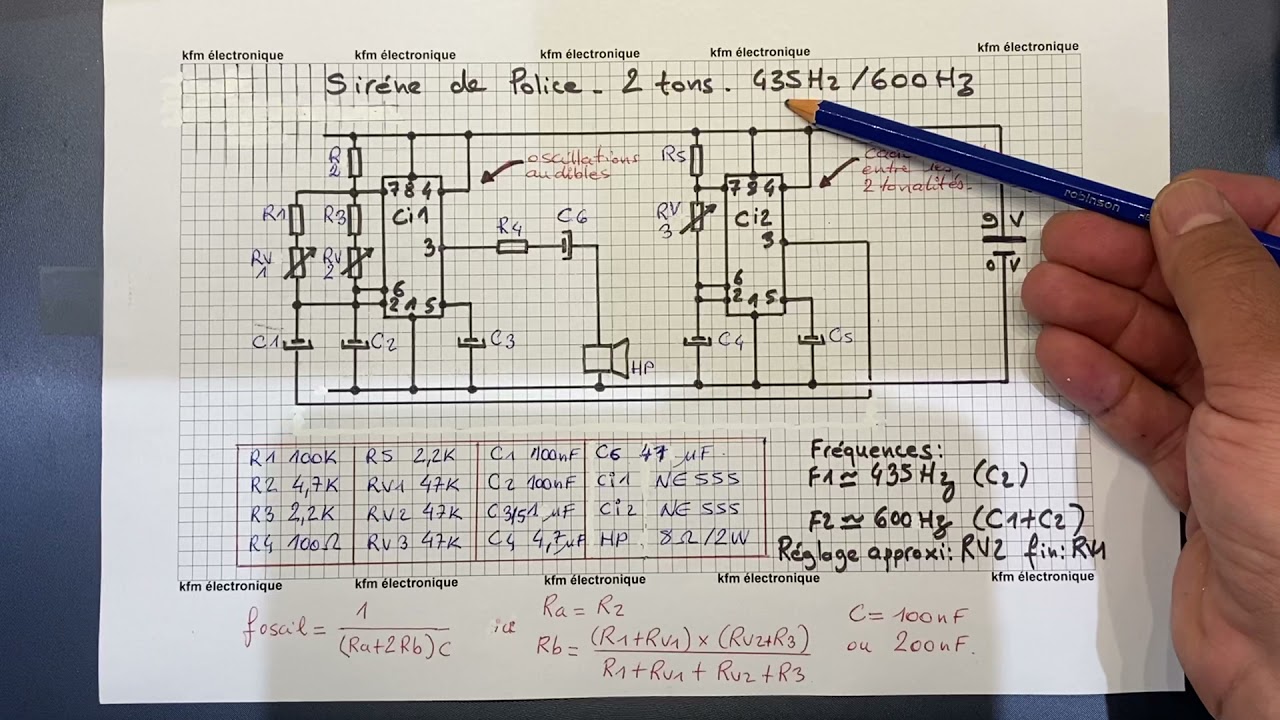 kfm électronique kfm électronique kfm électronique kfm électronique kfm électronique
Siréne de Police - 2 tons. 435Hz/600Hz
R2
oscillations
audibles
R5
entre les
2 tonalités.
7 8 4
7 8 4
R1 R3 Ci1
RV3 Ci2
C6
R4
3
3
9V
0V
RV1 RV2
6
2 1 5
6
2 1 5
C1 C2 C3 HP C4 C5
R1 100K R5 2,2K C1 100nF C6 47 µF.
R2 4,7K RV1 47K C2 100nF Ci1 NE 555
R3 2,2K RV2 47K C3/5 1 µF Ci2 NE 555
R4 100Ω RV3 47K C4 4,7µF HP 8Ω/2W
Fréquences:
F1≃ 435Hz (C2)
F2≃ 600Hz (C1+C2)
Réglage approxi: RV2 fin: RV1
kfm électronique kfm électronique kfm électronique kfm électronique kfm électronique
foscil = 1 / (Ra+2Rb)C
Ra = R2
Rb = (R1+RV1) x (RV2+R3) / R1+RV1 + RV2 + R3
C = 100nF
ou 200nF.
robinson